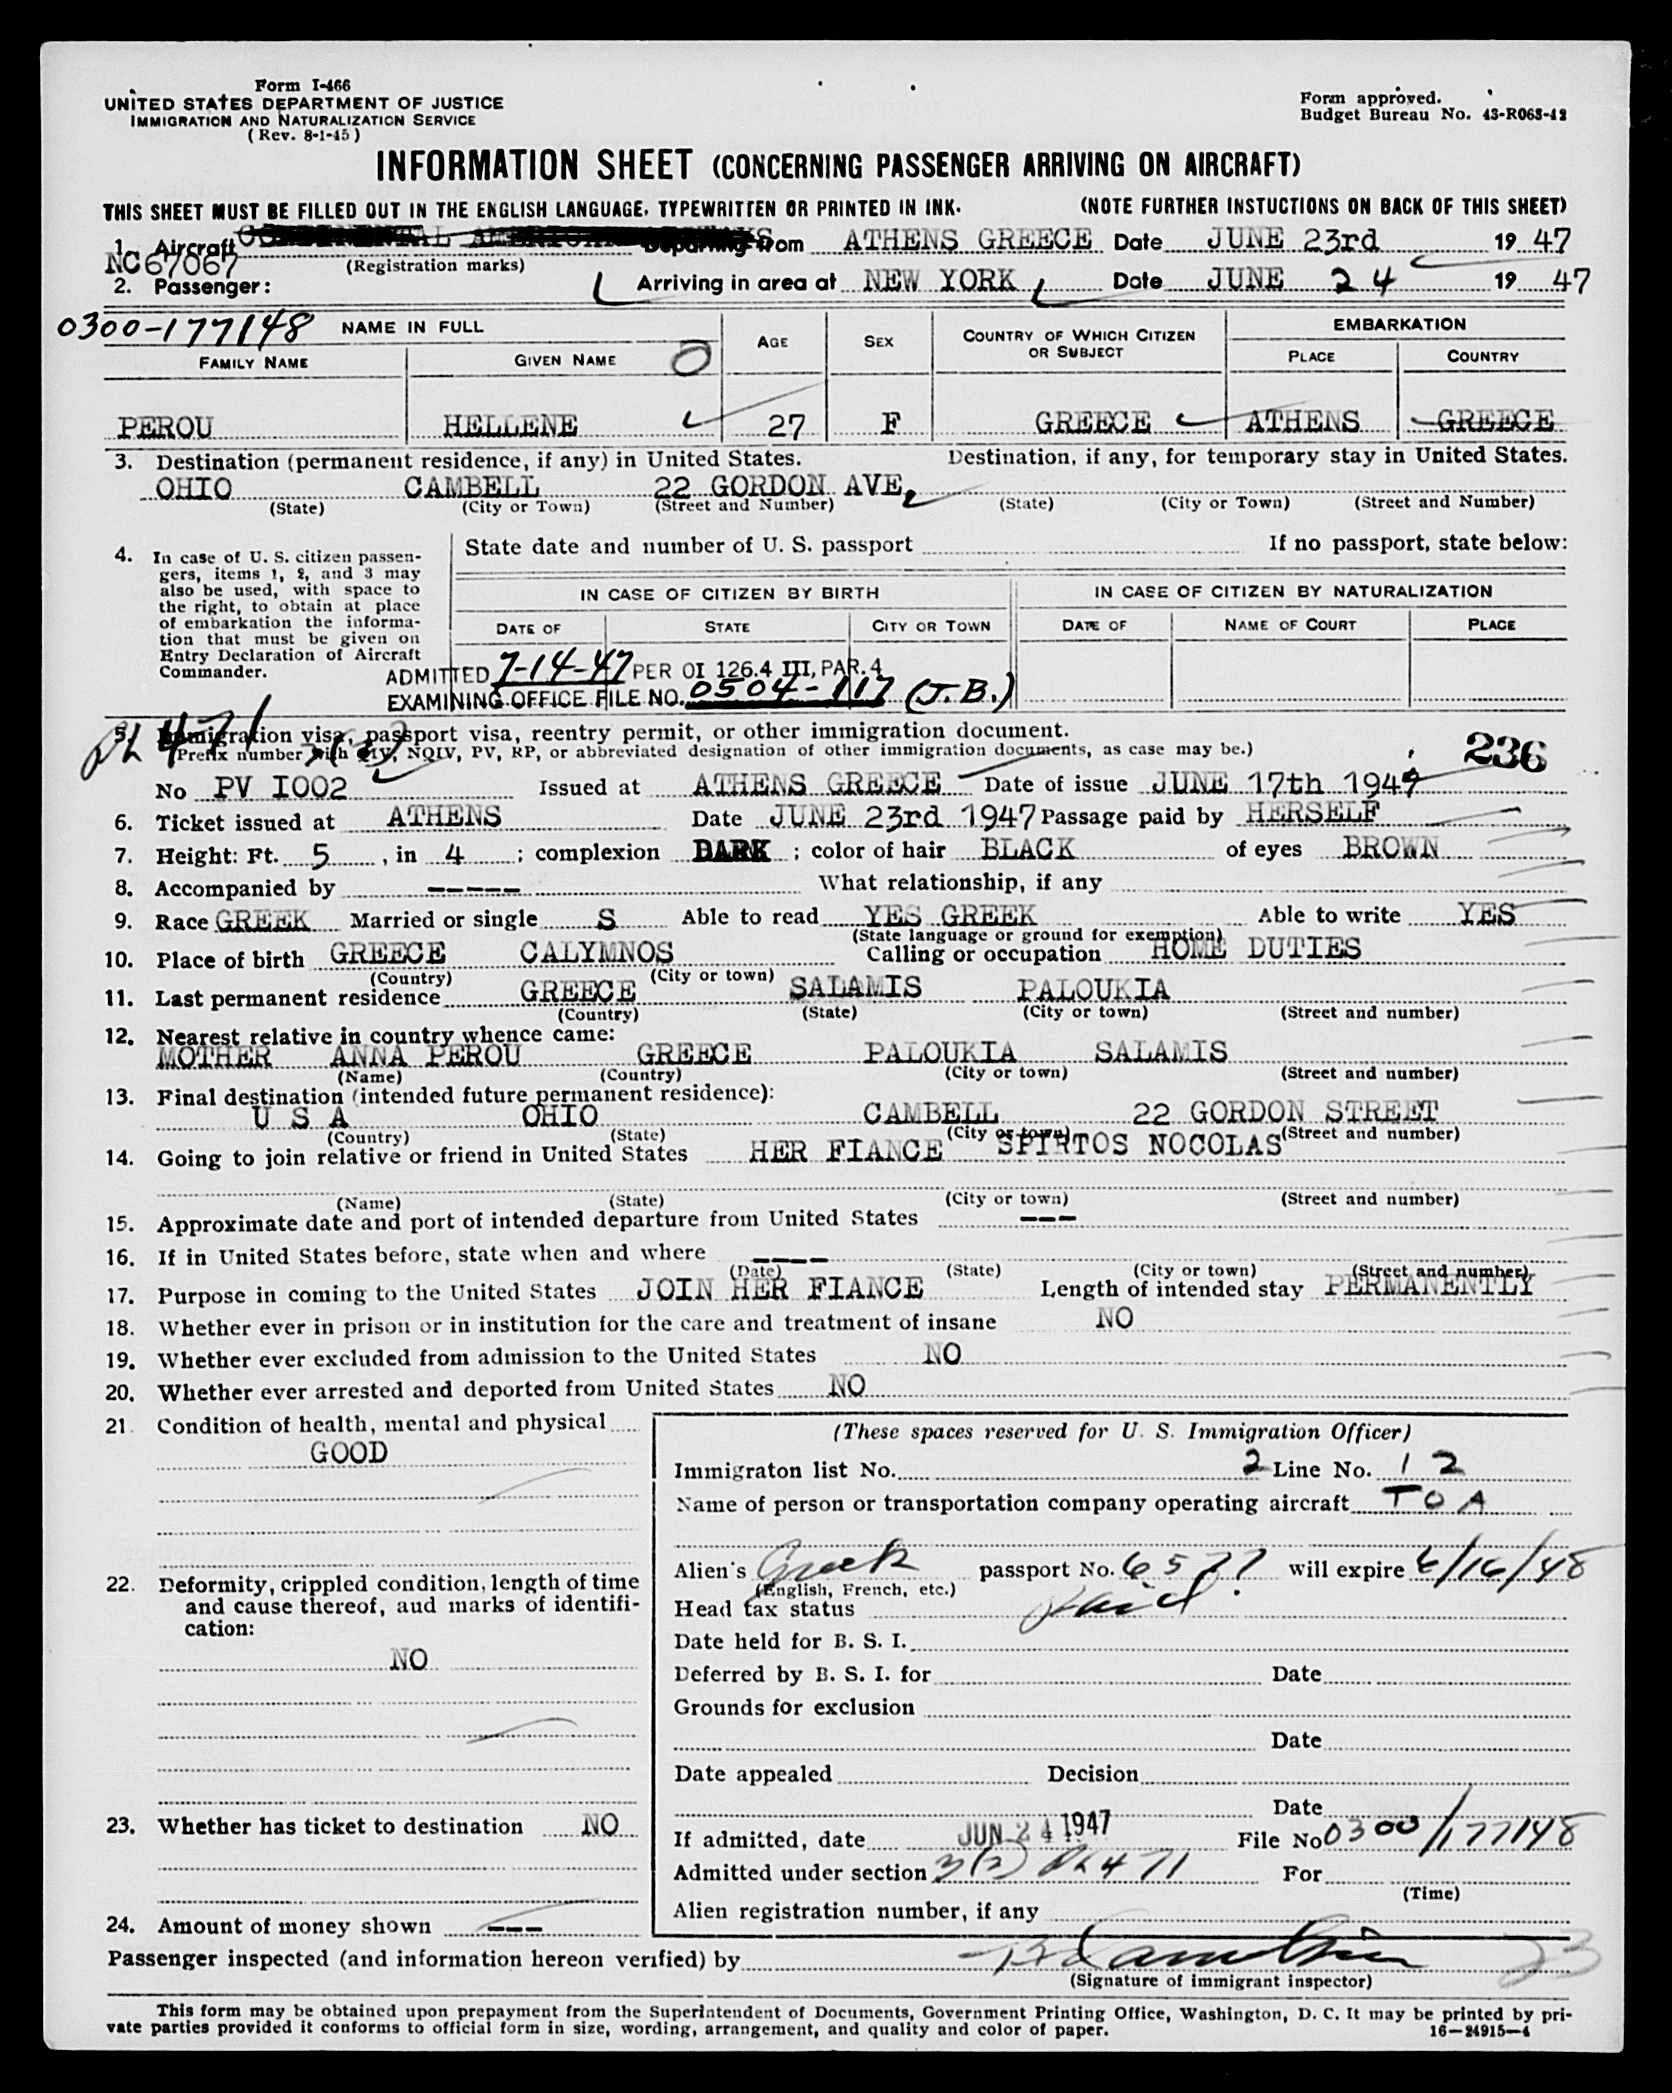 Form I-466
UNITED STATES DEPARTMENT OF JUSTICE
IMMIGRATION AND NATURALIZATION SERVICE
(Rev. 8-1-45)
Form approved.
Budget Bureau No. 43-R065-42
INFORMATION SHEET (CONCERNING PASSENGER ARRIVING ON AIRCRAFT)
THIS SHEET MUST BE FILLED OUT IN THE ENGLISH LANGUAGE, TYPEWRITTEN OR PRINTED IN INK. (NOTE FURTHER INSTUCTIONS ON BACK OF THIS SHEET)
1. Aircraft Departing from ATHENS GREECE Date JUNE 23rd 19 47
NC67067 (Registration marks)
2. Passenger: Arriving in area at NEW YORK Date JUNE 24 19 47
0300-177148 NAME IN FULL AGE SEX COUNTRY OF WHICH CITIZEN OR SUBJECT EMBARKATION
FAMILY NAME GIVEN NAME PLACE COUNTRY
PEROU HELLENE 27 F GREECE ATHENS GREECE
3. Destination (permanent residence, if any) in United States. Destination, if any, for temporary stay in United States.
OHIO CAMBELL 22 GORDON AVE,
(State) (City or Town) (Street and Number) (State) (City or Town) (Street and Number)
4. In case of U. S. citizen passen-
gers, items 1, 2, and 3 may
also be used, with space to
the right, to obtain at place
of embarkation the informa-
tion that must be given on
Entry Declaration of Aircraft
Commander.
State date and number of U. S. passport If no passport, state below:
IN CASE OF CITIZEN BY BIRTH IN CASE OF CITIZEN BY NATURALIZATION
DATE OF STATE CITY OR TOWN DATE OF NAME OF COURT PLACE
ADMITTED 7-14-47 PER OI 126.4 III, PAR. 4
EXAMINING OFFICE FILE NO. 0504-117 (J.B.)
PL 471
5. Immigration visa, passport visa, reentry permit, or other immigration document.
(Prefix number with QIV, NQIV, PV, RP, or abbreviated designation of other immigration documents, as case may be.) 236
No PV I002 Issued at ATHENS GREECE Date of issue JUNE 17th 1947
6. Ticket issued at ATHENS Date JUNE 23rd 1947 Passage paid by HERSELF
7. Height: Ft. 5, in 4; complexion DARK; color of hair BLACK of eyes BROWN
8. Accompanied by ----- What relationship, if any
9. Race GREEK Married or single S Able to read YES GREEK Able to write YES
(State language or ground for exemption)
10. Place of birth GREECE CALYMNOS Calling or occupation HOME DUTIES
(Country) (City or town)
11. Last permanent residence GREECE SALAMIS PALOUKIA
(Country) (State) (City or town) (Street and number)
12. Nearest relative in country whence came:
MOTHER ANNA PEROU GREECE PALOUKIA SALAMIS
(Name) (Country) (City or town) (Street and number)
13. Final destination (intended future permanent residence):
U S A OHIO CAMBELL 22 GORDON STREET
(Country) (State) (City or town) (Street and number)
14. Going to join relative or friend in United States HER FIANCE SPIRTOS NOCOLAS
(Name) (State) (City or town) (Street and number)
15. Approximate date and port of intended departure from United States ---
16. If in United States before, state when and where ----
(Date) (State) (City or town) (Street and number)
17. Purpose in coming to the United States JOIN HER FIANCE Length of intended stay PERMANENTLY
18. Whether ever in prison or in institution for the care and treatment of insane NO
19. Whether ever excluded from admission to the United States NO
20. Whether ever arrested and deported from United States NO
21. Condition of health, mental and physical
GOOD
22. Deformity, crippled condition, length of time
and cause thereof, and marks of identifi-
cation:
NO
23. Whether has ticket to destination NO
24. Amount of money shown ---
(These spaces reserved for U. S. Immigration Officer)
Immigraton list No. 2 Line No. 12
Name of person or transportation company operating aircraft TOA
Alien's Greek passport No. 6577 will expire 6/16/48
(English, French, etc.)
Head tax status Paid
Date held for B. S. I.
Deferred by B. S. I. for Date
Grounds for exclusion
Date
Date appealed Decision
Date
If admitted, date JUN 24 1947 File No 0300/177148
Admitted under section 3(2) PL 471 For
(Time)
Alien registration number, if any
Passenger inspected (and information hereon verified) by
23
(Signature of immigrant inspector)
This form may be obtained upon prepayment from the Superintendent of Documents, Government Printing Office, Washington, D. C. It may be printed by pri-
vate parties provided it conforms to official form in size, wording, arrangement, and quality and color of paper.
16—24915-4